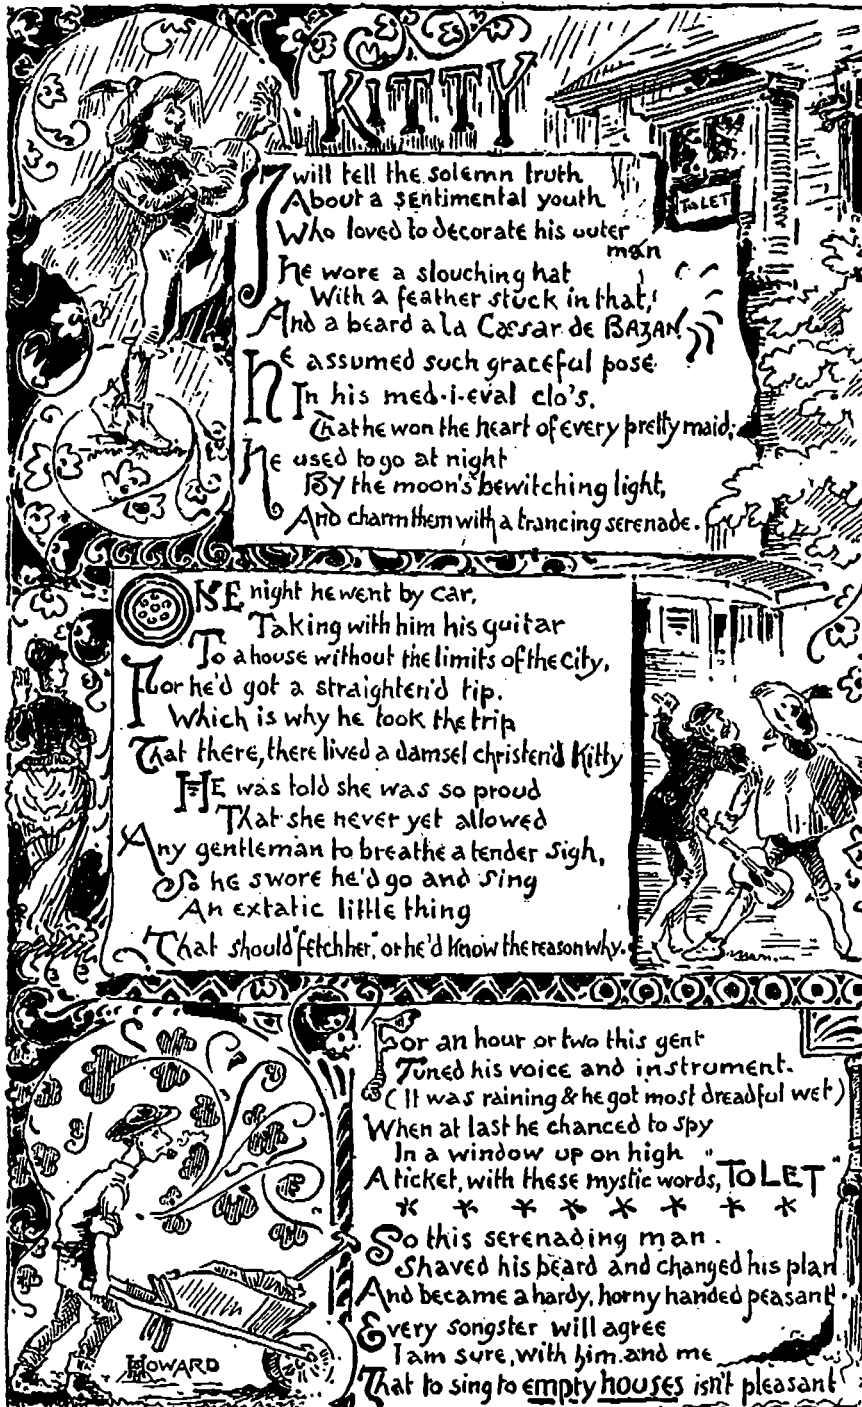 KITTY
I will tell the solemn truth
About a sentimental youth
Who loved to decorate his outer
man
he wore a slouching hat
With a feather stuck in that,
And a beard a la Cæsar de BAZAN
He assumed such graceful pose
In his med-i-eval clo's.
That he won the heart of every pretty maid;
he used to go at night
By the moon's bewitching light,
And charm them with a trancing serenade.
TO LET
ONE night he went by car,
Taking with him his guitar
To a house without the limits of the city,
For he'd got a straighten'd tip.
Which is why he took the trip
That there, there lived a damsel christen'd Kitty
HE was told she was so proud
That she never yet allowed
Any gentleman to breathe a tender sigh,
So he swore he'd go and sing
An extatic little thing
That should "fetch her," or he'd know the reason why.
For an hour or two this gent
Tuned his voice and instrument.
(It was raining & he got most dreadful wet)
When at last he chanced to spy
In a window up on high
A ticket, with these mystic words, "TO LET"
* * * * * * * *
So this serenading man.
Shaved his beard and changed his plan
And became a hardy, horny handed peasant.
Every songster will agree
I am sure, with him and me
That to sing to empty houses isn't pleasant
HOWARD